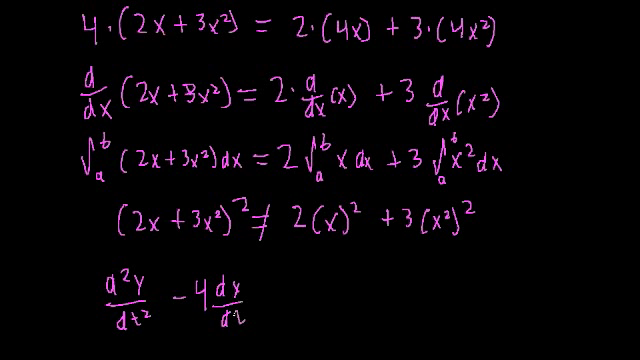 4·(2x+3x²) = 2·(4x) + 3·(4x²)
d/dx (2x+3x²) = 2·d/dx (x) + 3 d/dx (x²)
∫_a^b (2x+3x²)dx = 2∫_a^b x dx + 3∫_a^b x² dx
(2x+3x²)² ≠ 2(x)² + 3(x²)²
d²y/dt² - 4 dy/dt